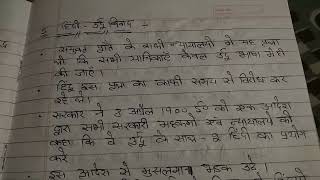 5. हिंदी - उर्दू विवाद -
• संयुक्त प्रांत के सभी न्यायालयों में यह प्रथा
थी कि सभी याचिकाएँ केवल उर्दू भाषा में ही
की जाएँ।
• हिंदू इस प्रथा का काफी समय से विरोध कर
रहे थे।
• सरकार ने 8 अप्रैल 1900 ई० को एक आदेश
द्वारा सभी सरकारी महकमों एवं न्यायालयों को
कहा कि वे उर्दू के साथ - 2 हिंदी का प्रयोग
करे
• इस आदेश से मुसलमान भड़क उठे।